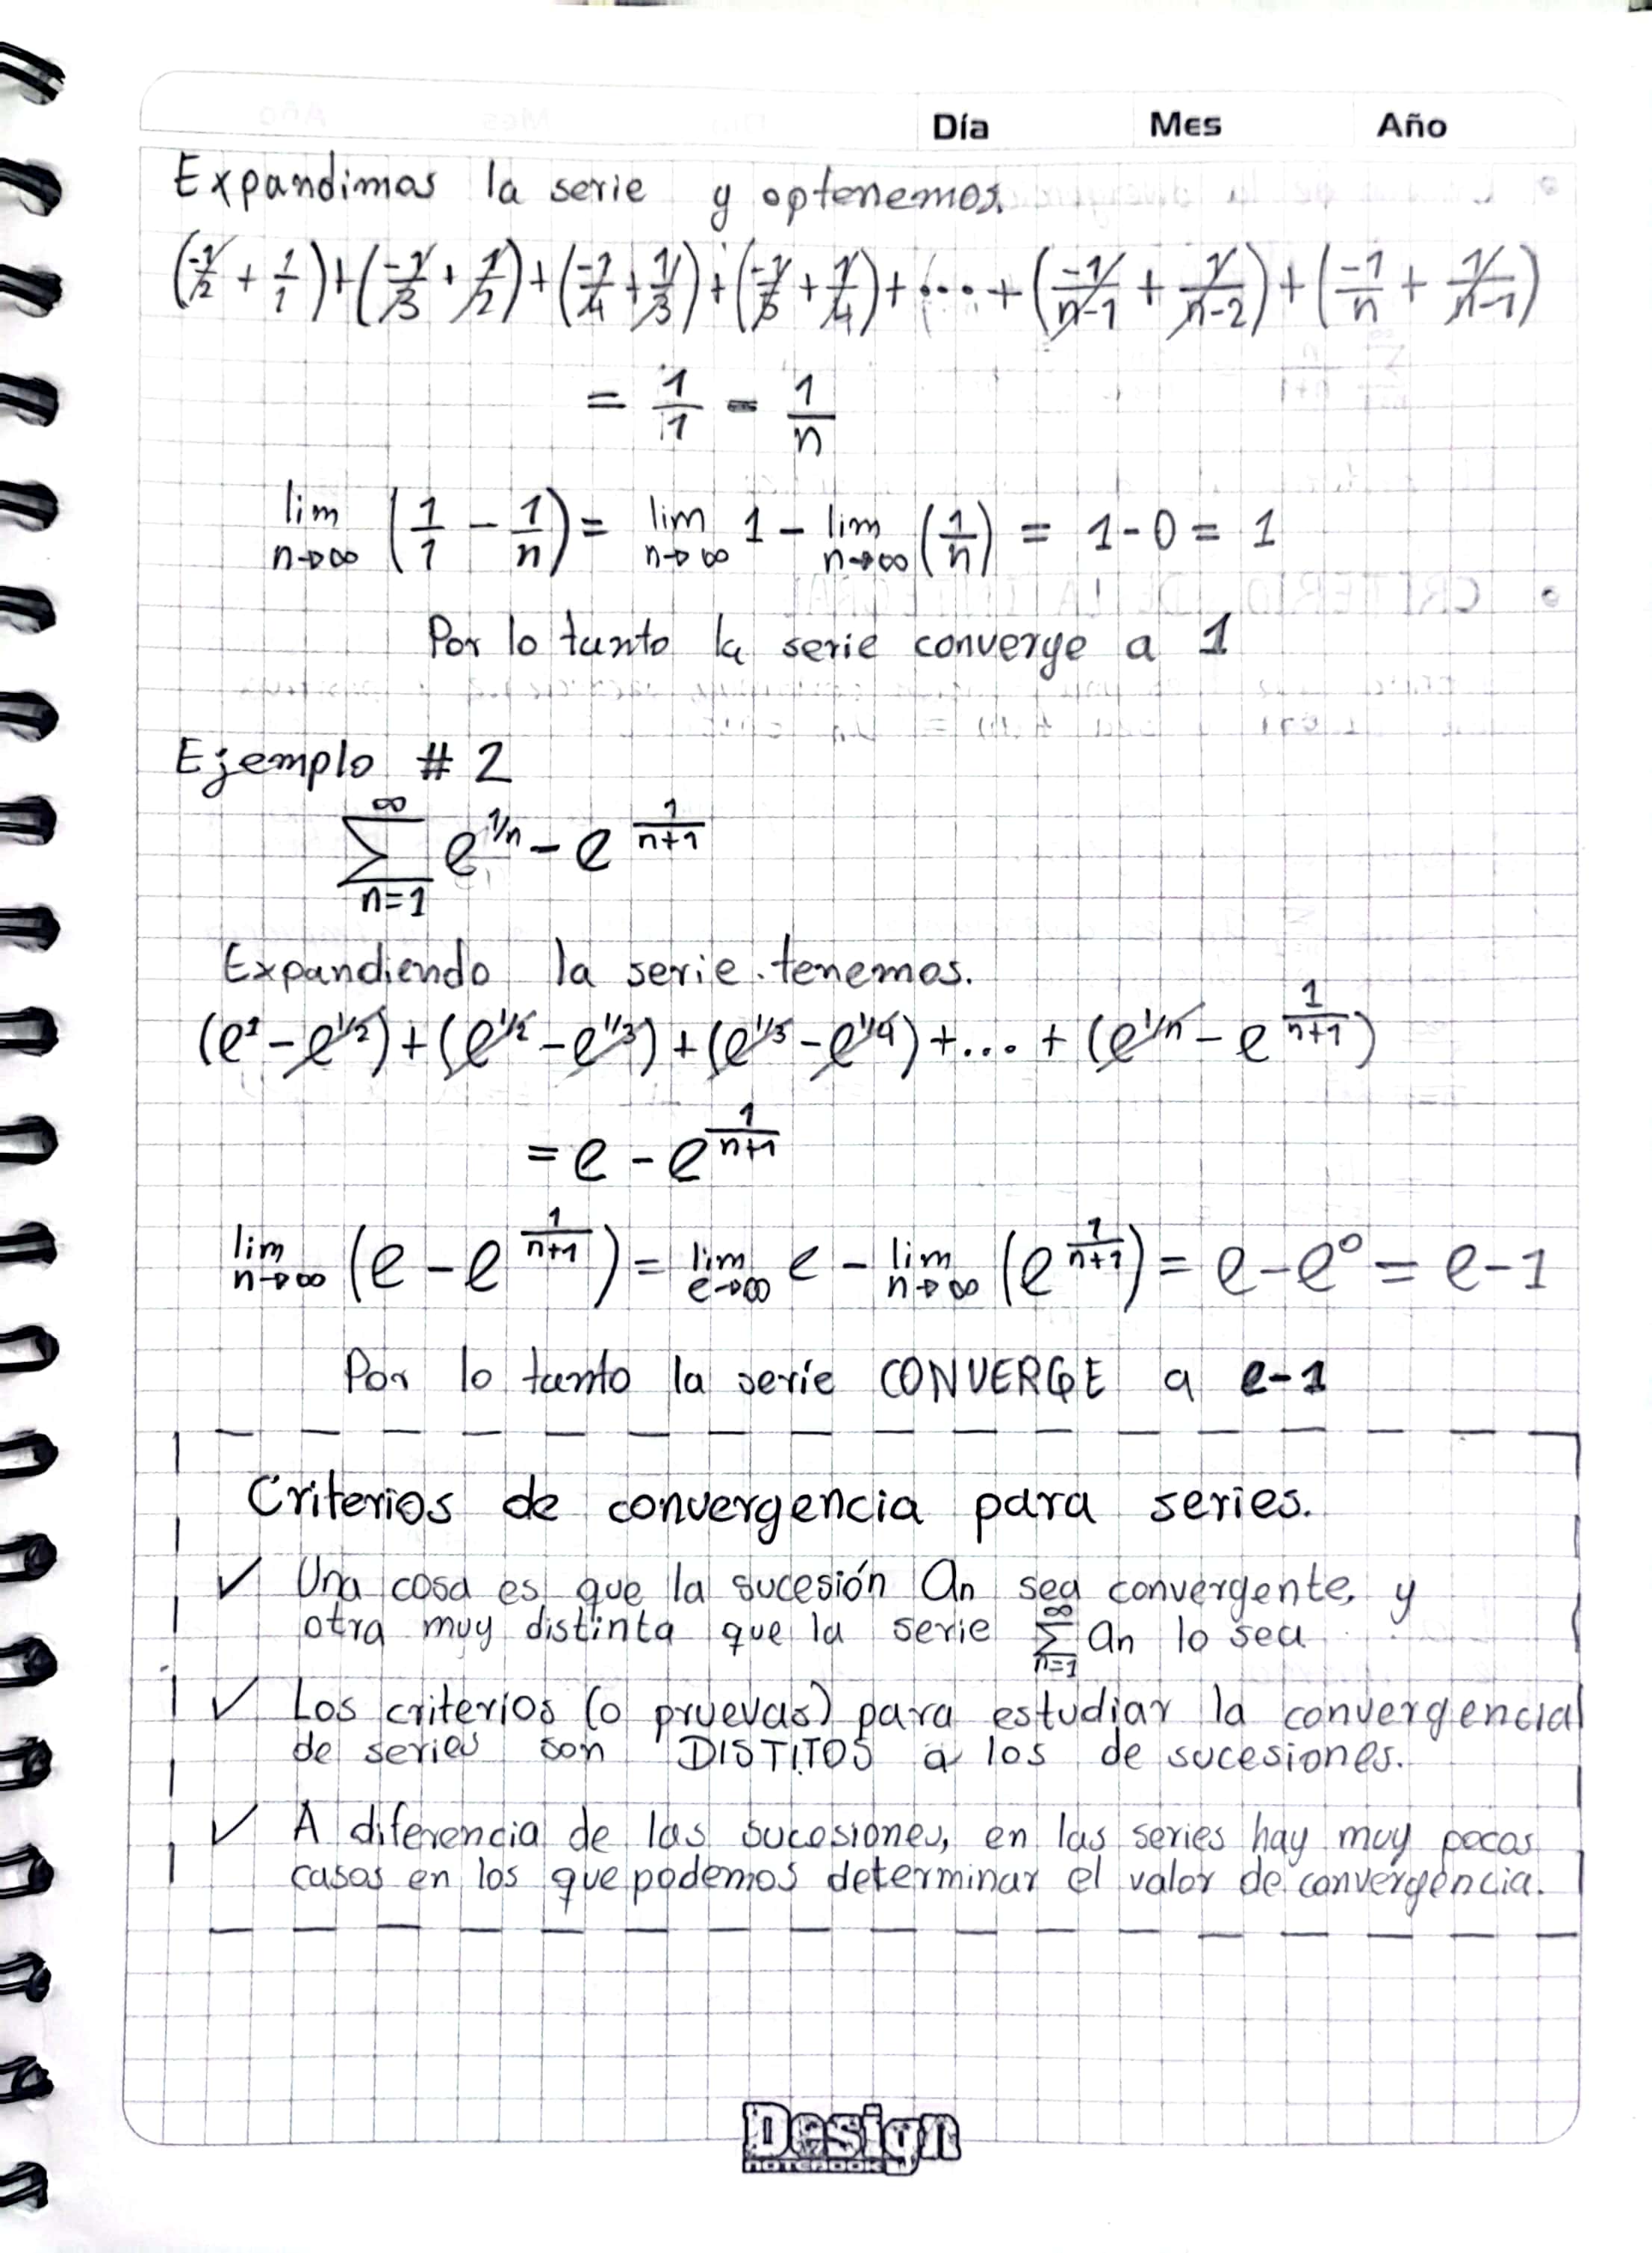 Día Mes Año
Expandimos la serie y optenemos.
(-1/2 + 1/1) + (-1/3 + 1/2) + (-1/4 + 1/3) + (-1/5 + 1/4) + ... + (-1/n-1 + 1/n-2) + (-1/n + 1/n-1)
= 1/1 - 1/n
lim n→∞ (1/1 - 1/n) = lim n→∞ 1 - lim n→∞ (1/n) = 1-0 = 1
Por lo tanto la serie converge a 1
Ejemplo #2
∑ n=1 ∞ e^1/n - e^1/n+1
Expandiendo la serie tenemos.
(e^1 - e^1/2) + (e^1/2 - e^1/3) + (e^1/3 - e^1/4) + ... + (e^1/n - e^1/n+1)
= e - e^1/n+1
lim n→∞ (e - e^1/n+1) = lim e→∞ e - lim n→∞ (e^1/n+1) = e - e^0 = e-1
Por lo tanto la serie CONVERGE a e-1
Criterios de convergencia para series.
✓ Una cosa es que la sucesión an sea convergente, y
otra muy distinta que la serie ∑ n=1 ∞ an lo sea
✓ Los criterios (o pruevas) para estudiar la convergencia
de series son DISTITOS a los de sucesiones.
✓ A diferencia de las sucesiones, en las series hay muy pocos
casos en los que podemos determinar el valor de convergencia.
Design
NOTEBOOK